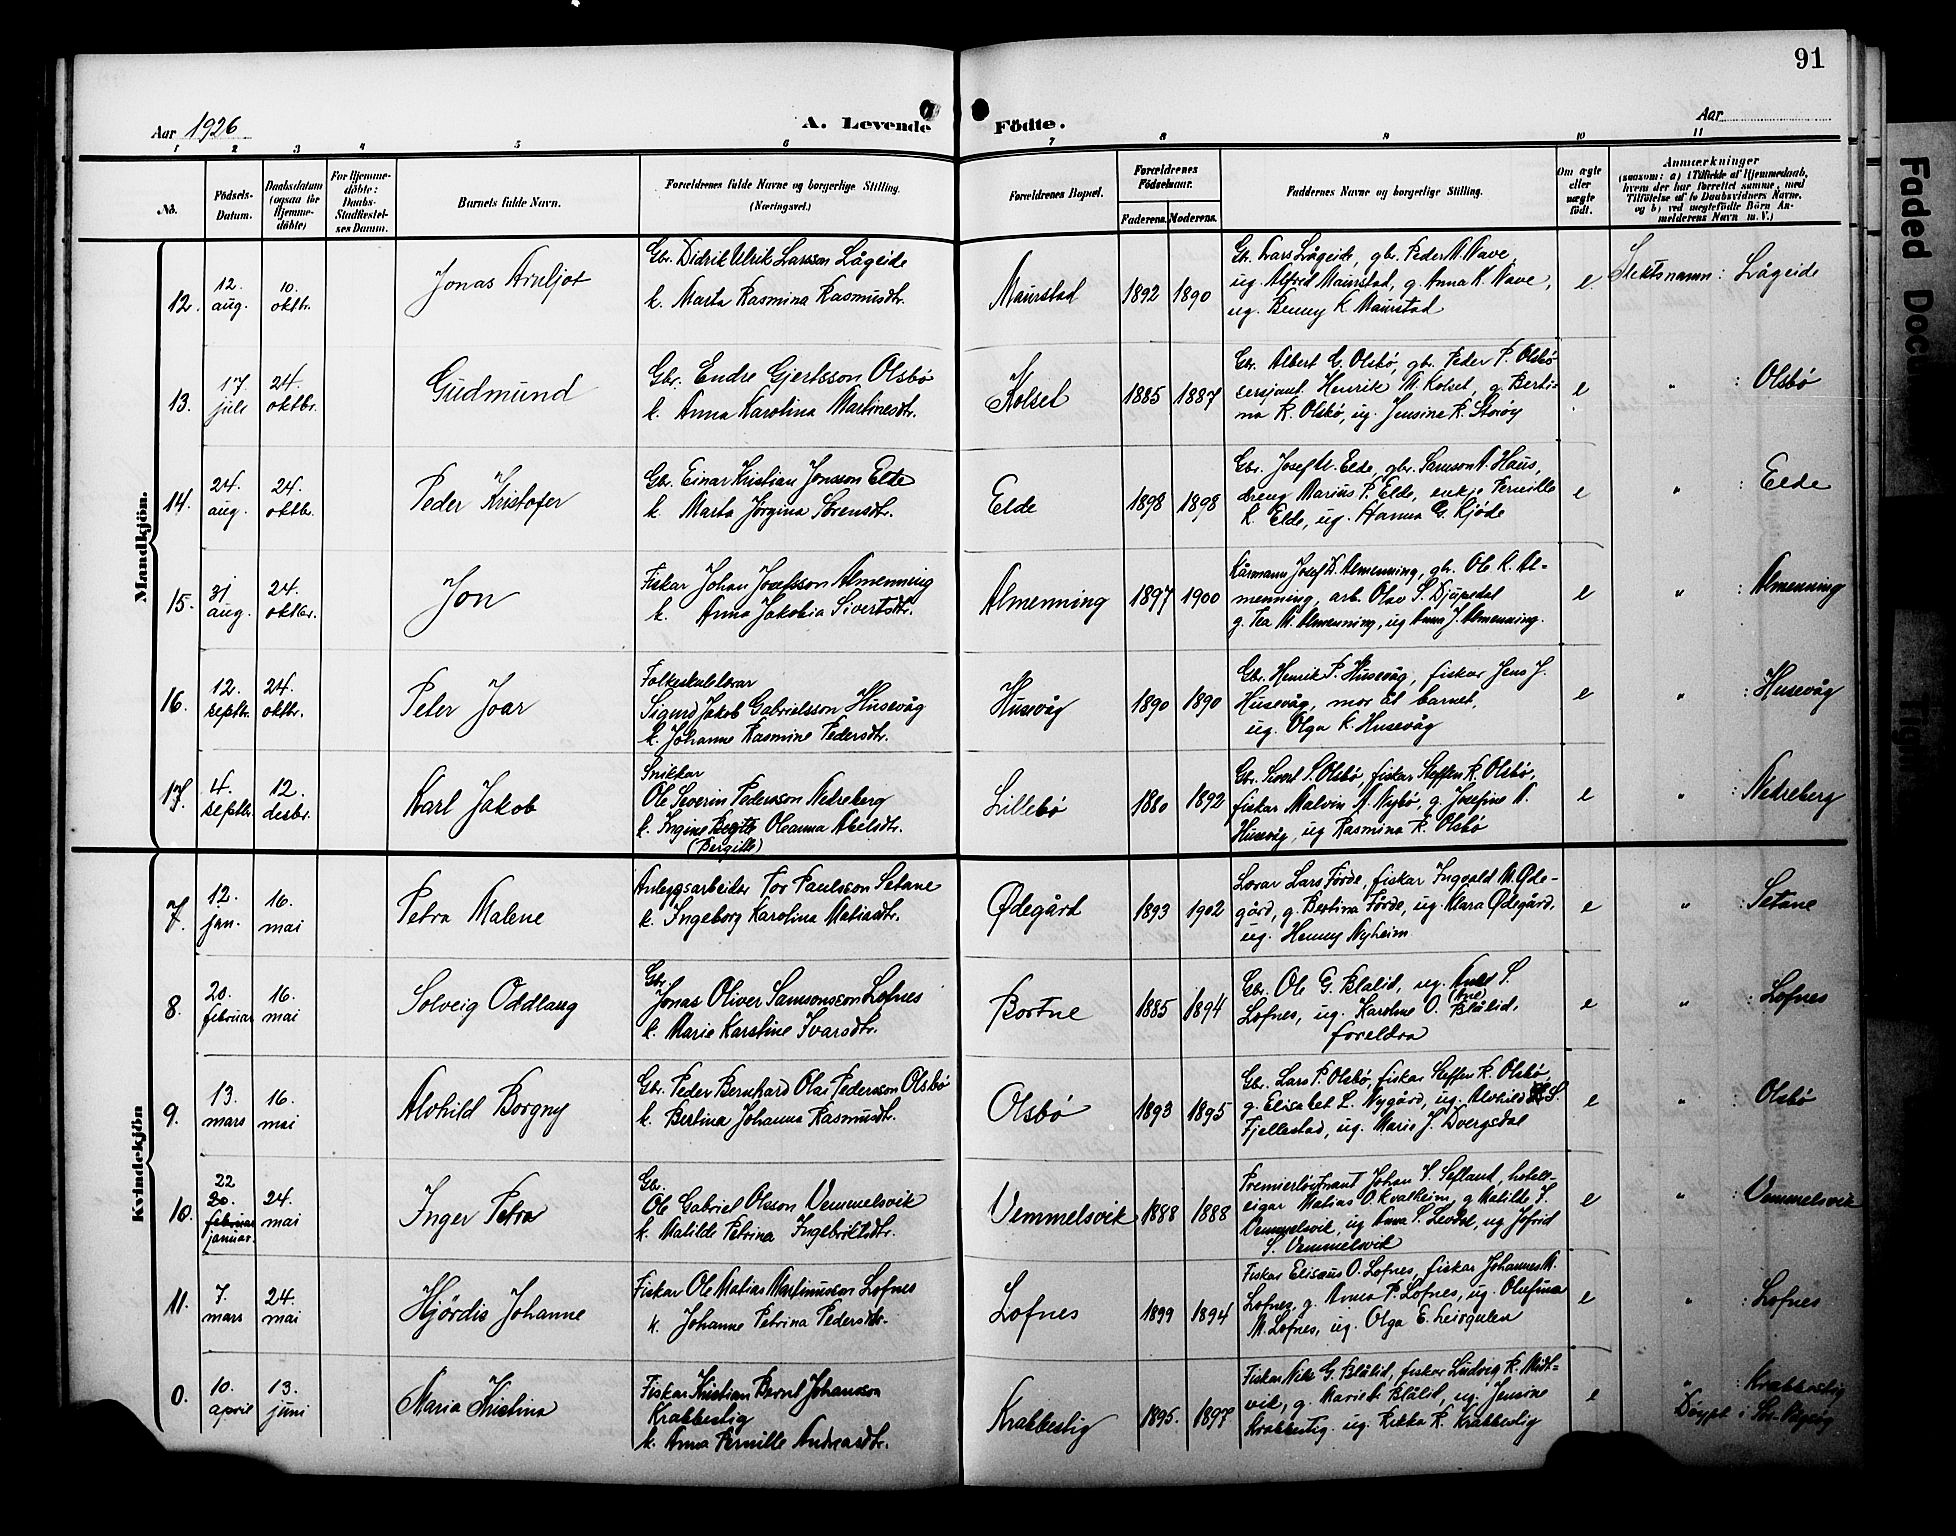 91
Aar 1926
A. Levende Födte.
Aar
1 2 3 4 5 6 7 8 9 10 11
No.
Födsels-
Datum.
Daabsdatum
(ogsaa for
Hjemme-
döbte)
For Hjemme-
döbte:
Daabs-
Stadfæstel-
ses Datum.
Barnets fulde Navn.
Forældrenes fulde Navne og borgerlige Stilling.
(Næringsvei.)
Forældrenes Bopæl.
Forældrenes
Födselsaar.
Faderens. Moderens.
Faddernes Navne og borgerlige Stilling.
Om ægte
eller
uægte
født.
Anmærkninger
(saasom: a) i Tilfælde af Hjemmedaab,
hvem der har forrettet samme, med
Tilföielse af to Daabsvidners Navne,
og b) ved uægtefödte Börn An-
melderens Navn m. V.)
Mandkjön.
12. 12. aug. 10. oktbr. Jonas Arnljot
Gbr. Didrik Ulrik Larsson Lågeide
k. Marta Rasmina Rasmusdtr.
Maurstad 1892 1890
Gbr. Lars Lågeide, gbr. Peder M. Nave,
ug. Alfred Maurstad, g. Anna K. Nave,
ug. Benny K. Maurstad
e. Slektsnamn: Lågeide
13. 17 juli 24. oktbr. Gudmund
Gbr. Endre Gjertsson Olsbø
k. Anna Karolina Martinesdtr.
Kolset 1885 1887
Gbr. Albert G. Olsbø, gbr. Peder P. Olsbø
sersjant Henrik M. Kolset, g. Berti-
na R. Olsbø, ug. Jensine R. Storøy
e " : Olsbø
14. 24. aug. 24. oktbr. Peder Kristofer
Gbr. Einar Kristian Jonsson Elde
k. Marta Jørgina Sørensdtr.
Elde 1898 1898
Gbr. Josef M. Elde, gbr. Samson A. Haus,
dreng Marius P. Elde, enkje Pernille
R. Elde, ug. Hanna G. Kjøde
e " : Elde
15. 31 aug. 24. oktbr. Jon
Fiskar Johan Josefsson Almenning
k. Anna Jakobia Sivertsdtr.
Almenning 1897 1900
Kårmann Josef D. Almenning, gbr. Ole R. Al-
menning, arb. Olav S. Djupedal
g. Tea M. Almenning, ug Anna J. Almenning.
e " : Almenning
16. 12. septbr. 24. oktbr. Peter Joar
Folkeskulelærar
Sigurd Jakob Gabrielsson Husevåg
k. Johanne Rasmine Pedersdtr.
Husevåg 1890 1890
Gbr. Henrik P. Husevåg, fiskar Jens J.
Husevåg, mor åt barnet,
ug. Olga K. Husevåg
e " : Husevåg
17. 4. septbr. 12. desbr. Karl Jakob
Snikkar
Ole Severin Pedersson Nedreberg
k. Ingine Oleanna Abelsdtr.
(Bergitte)
Lillebø 1880 1892
Gbr. Sivert S. Olsbø, fiskar Steffen R. Olsbø,
fiskar Malvin A. Nybø, g. Josefine A.
Husevåg, ug Rasmina R. Olsbø
e " : Nedreberg
Kvindekjön
7. 12. jan. 16. mai Petra Malene
Anleggsarbeider Tor Paulsson Setane
k. Ingeborg Karolina Matiasdtr.
Ødegård 1893 1902
Lærar Lars Førde, fiskar Ingvald M. Øde-
gård, g. Bertina Førde, ug. Klara Ødegård,
ug. Henny Nyheim
e " : Setane
8. 20. februar 16. mai Solveig Oddlaug
Gbr.
Jonas Oliver Samsonsson Lofnes
k. Marie Karstine Ivarsdtr.
Bortne 1885 1894
Gbr. Ole G. Blålid, ug. S.
Lofnes, ug. Karoline O. Blålid,
foreldra
e " : Lofnes
9. 13. mars 16. mai Alvhild Borgny
Gbr. Peder Bernhard Olai Pedersson Olsbø
k. Bertina Johanna Rasmusdtr.
Olsbø 1893 1895
Gbr. Lars P. Olsbø, fiskar Steffen R. Olsbø,
g. Elisabet L. Nygård, ug. Alvhild S.
Fjellestad, ug. Marie J. Dvergsdal
e " : Olsbø
10. 22 20. februar januar. 24. mai Inger Petra
Gbr.
Ole Gabriel Olsson Vemmelsvik
k. Matilde Petrina Ingebriktsdtr.
Vemmelsvik 1888 1888
Premierløitnant Johan S. Sefland, hotell-
eigar Matias O. Kvalheim, g Matilde S.
Vemmelsvik, ug Anna S. Levdal, ug Jofrid
S. Vemmelsvik
e " : Vemmelsvik
11. 7. mars 24. mai Hjørdis Johanne
Fiskar Ole Matias Martinusson Lofnes
k. Johanne Petrina Pedersdtr.
Lofnes 1899 1894
Fiskar Elisæus O. Lofnes, fiskar Johannes M.
Lofnes, g. Anna P. Lofnes, ug. Olufina
M. Lofnes, ug. Olga E. Leirgulen
e " : Lofnes
0. 10. april 13. juni Maria Kristina
Fiskar Kristian Bernt Johansson
Krabbestig
k. Anna Pernille Andreasdtr.
Krabbestig 1895. 1897
Fiskar Nils G. Blålid, fiskar Ludvig R. Midt-
vik, g. Marie L. Blålid, ug. Jensine
Krabbestig, ug. Rikka R. Krabbestig
e " : Krabbestig
Døypt i Sør-Vågsøy
Faded Doc